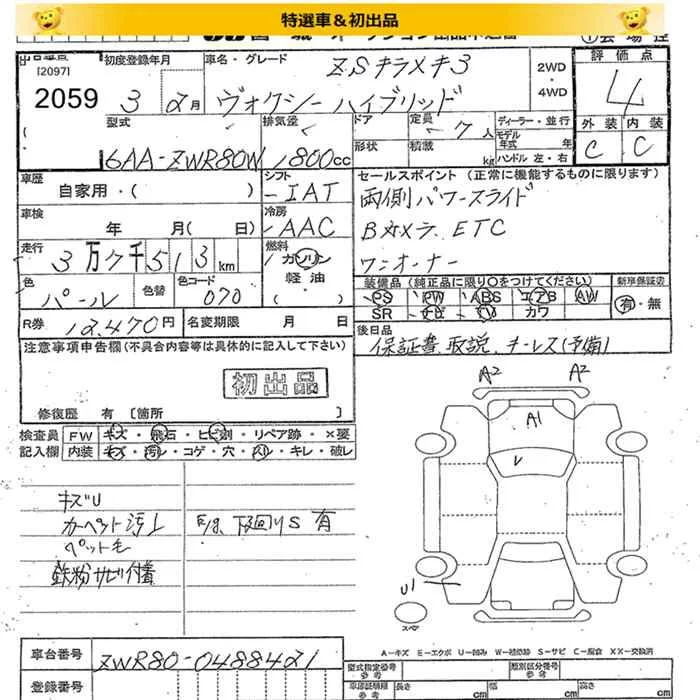 特選車&初出品
[2097]
2059
初度登録年月
3 2月
車名・グレード
ZSキラメキ3
ヴォクシーハイブリッド
2WD
・
4WD
評価点
4
外装 内装
C C
型式
6AA-ZWR80W
排気量
1800cc
ドア
形状
定員
7人
積載
kg
ディーラー・並行
モデル
年式 年
ハンドル 左・右
車歴
自家用・( )
シフト
IAT
セールスポイント (正常に機能するものに限ります)
両側パワースライド
Bカメラ、ETC
ワンオーナー
車検
年 月( 日)
冷房
AAC
走行
3万7千513km
燃料
ガソリン
軽油
色
パール
色替
色コード
070
装備品 (純正品に限り○をつけてください)
PS PW ABS エアB AW
SR ナビ TV カワ
新車保証書
有・無
R券 12,470円
名変期限 月 日
後日品
保証書、取説、キーレス(予備)
注意事項申告欄(不具合内容等は具体的に記入して下さい)
初出品
修復歴 有 [箇所 ]
検査員
記入欄
FW キズ・飛石・ヒビ割・リペア跡・×要
内装 キズ・汚レ・コゲ・穴・スレ・キレ・破レ
キズU
カーペット汚れ
ペット毛
鉄粉サビ付着
下回りS 有
A2
A2
A1
U1
スペア
A-キズ E-エクボ U-凹み W-補修跡 S-サビ C-腐食 XX-交換済
車台番号
ZWR80-0488421
登録番号
型式指定番号
参考
類別区分番号
参考
車庫証明数
参考
長さ cm
幅 cm
高さ cm